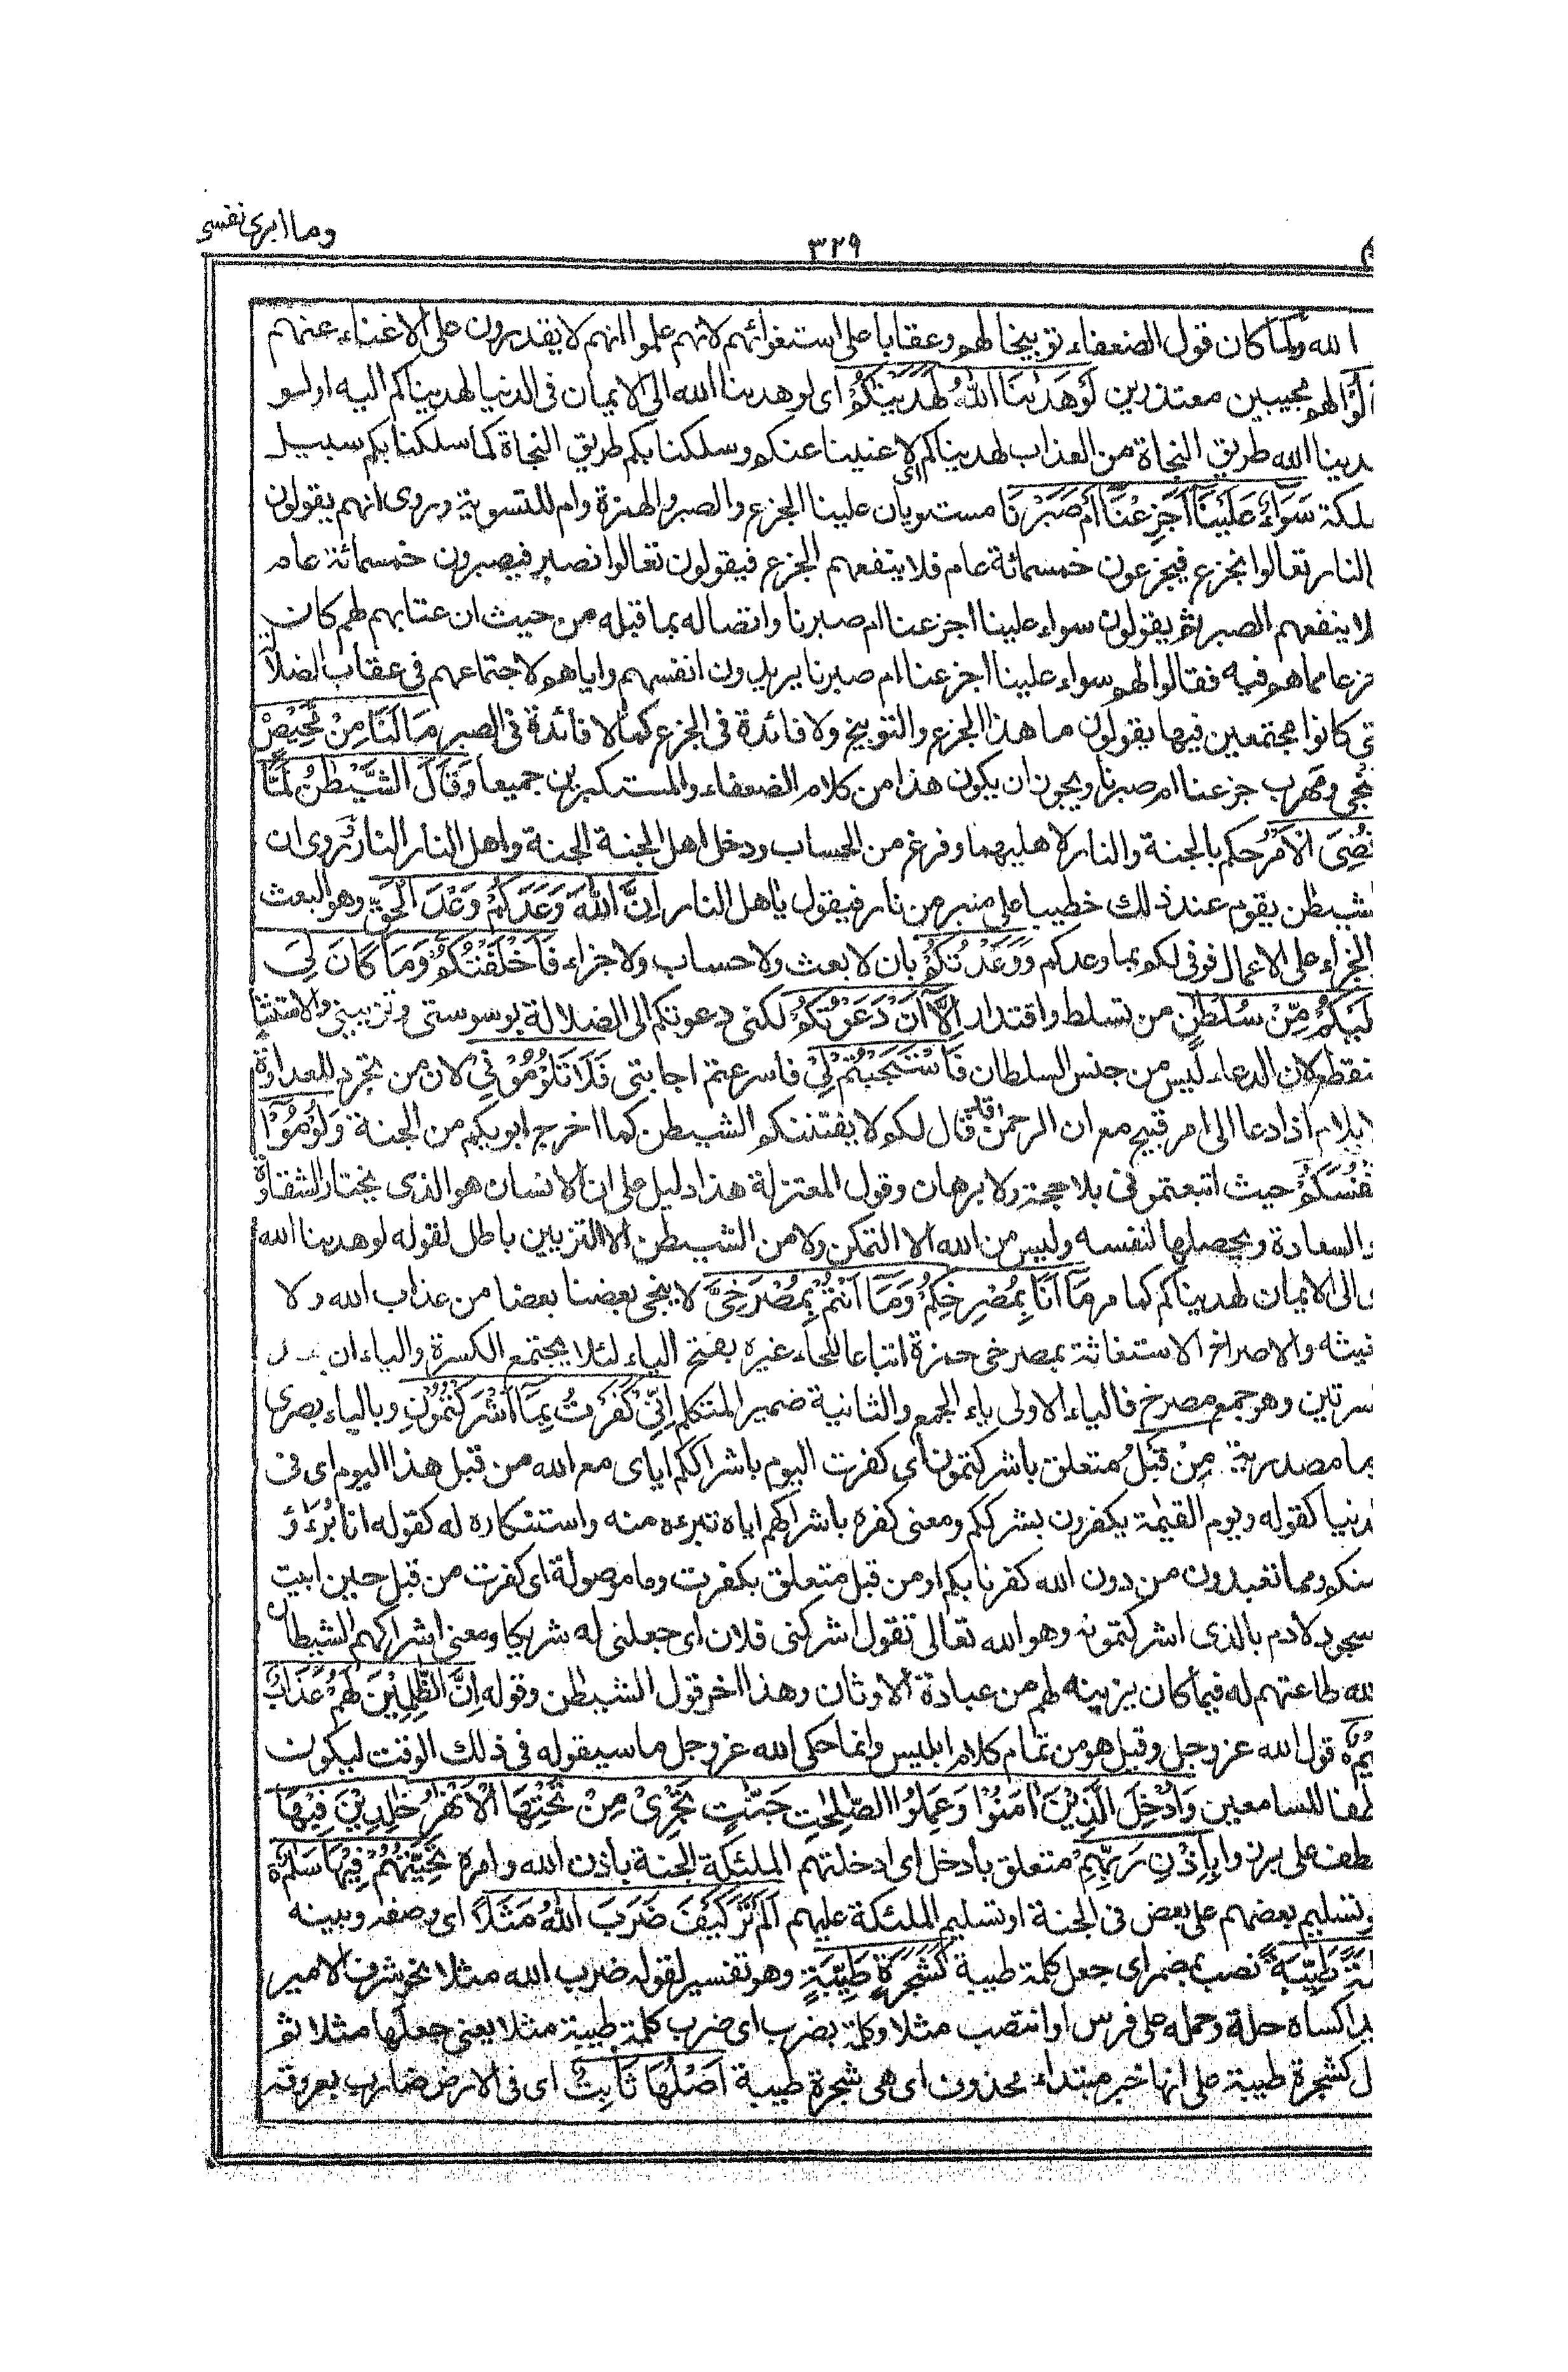 وما ابرئ نفسي
٣٢٩
الله ولما كان قول الضعفاء توبيخا لهم وعقابا على استغوائهم لانهم علموا انهم لا يقدرون على الاغناء عنهم
لَوْ لهم مجيبين معتذرين لَوْ هَدٰىنَا اللّٰهُ لَهَدَيْنٰكُمْ اى لو هدينا الله الى الايمان فى الدنيا لهديناكم اليه او لو
دينا الله طريق النجاة من العذاب لهديناكم اى لاغنينا عنكم وسلكنا بكم طريق النجاة كما سلكنا بكم سبيل
لكة سَوَآءٌ عَلَيْنَآ اَجَزِعْنَآ اَمْ صَبَرْنَا مستويان علينا الجزع والصبر والهمزة وام للتسوية وروى انهم يقولون
النار تعالوا نجزع فيجزعون خمسمائة عام فلا ينفعهم الجزع فيقولون تعالوا نصبر فيصبرون خمسمائة عام
لا ينفعهم الصبر ثم يقولون سواء علينا اجزعنا ام صبرنا واتصاله بما قبله من حيث ان عتابهم لهم كان
زعا مما هم فيه فقالوا لهم سواء علينا اجزعنا ام صبرنا يريدون انفسهم واياهم لاجتماعهم فى عقاب الضلالة
تى كانوا مجتمعين فيها يقولون ما هذا الجزع والتوبيخ ولا فائدة فى الجزع كما لا فائدة فى الصبر مَا لَنَا مِنْ مَّحِيْصٍ
نجى ومهرب جزعنا ام صبرنا ويجوز ان يكون هذا من كلام الضعفاء والمستكبرين جميعا وَقَالَ الشَّيْطٰنُ لَمَّا
قُضِىَ الْاَمْرُ حكم بالجنة والنار لاهليهما وفرغ من الحساب ودخل اهل الجنة الجنة واهل النار النار وروى ان
لشيطن يقوم عند ذلك خطيبا على منبر من نار فيقول ياهل النار اِنَّ اللّٰهَ وَعَدَكُمْ وَعْدَ الْحَقِّ وهو البعث
الجزاء على الاعمال فوفى لكم بما وعدكم وَوَعَدْتُّكُمْ بان لا بعث ولا حساب ولا جزاء فَاَخْلَفْتُكُمْ وَمَا كَانَ لِىَ
لَيْكُمْ مِّنْ سُلْطٰنٍ من تسلط واقتدار اِلَّآ اَنْ دَعَوْتُكُمْ لكنى دعوتكم الى الضلالة بوسوستى وتزيينى والاستثنا
نقطع لان الدعاء ليس من جنس السلطان فَاسْتَجَبْتُمْ لِىْ فاسرعتم اجابتى فَلَا تَلُوْمُوْنِىْ لان من تجرد للعداوة
لا يلام اذا دعا الى امر قبيح مع ان الرحمن قد قال لكم لا يفتننكم الشيطن كما اخرج ابويكم من الجنة وَلُوْمُوْٓا
نْفُسَكُمْ حيث اتبعتمونى بلا حجة ولا برهان وقول المعتزلة هذا دليل على ان الانسان هو الذى يختار الشقاوة
والسعادة ويحصلها لنفسه وليس من الله الا التمكن ولا من الشيطن الا التزيين باطل لقوله لو هدينا الله
ى الى الايمان لهديناكم كما مر مَآ اَنَا بِمُصْرِخِكُمْ وَمَآ اَنْتُمْ بِمُصْرِخِىَّ لا ينجى بعضنا بعضا من عذاب الله ولا
غيثه والاصراخ الاستغاثة بمصرخى حمزة اتباعا للخاء غيره بفتح الياء لئلا يجتمع الكسرة والياء ان
سرتين وهو جمع مصرخ فالياء الاولى ياء الجمع والثانية ضمير المتكلم اِنِّىْ كَفَرْتُ بِمَآ اَشْرَكْتُمُوْنِ وبالياء بصرى
ما مصدرية مِنْ قَبْلُ متعلق باشركتمون اى كفرت اليوم باشراككم اياى مع الله من قبل هذا اليوم اى فى
لدنيا كقوله ويوم القيمة يكفرون بشرككم ومعنى كفره باشراكهم اياه تبرءه منه واستنكاره له كقوله انا بُرَءٰٓؤُ
منكم ومما تعبدون من دون الله كفرنا بكم او من قبل متعلق بكفرت وما موصولة اى كفرت من قبل حين ابيت
سجود لادم بالذى اشركتمونه وهو الله تعالى تقول اشركنى فلان اى جعلنى له شريكا ومعنى اشراكهم الشيطان
لله طاعتهم له فيما كان يزينه لهم من عبادة الاوثان وهذا اخر قول الشيطن وقوله اِنَّ الظّٰلِمِيْنَ لَهُمْ عَذَابٌ
يْمٌ قول الله عز وجل وقيل هو من تمام كلام ابليس وانما حكى الله عز وجل ما سيقوله فى ذلك الوقت ليكون
لطفا للسامعين وَاُدْخِلَ الَّذِيْنَ اٰمَنُوْا وَعَمِلُوا الصّٰلِحٰتِ جَنّٰتٍ تَجْرِىْ مِنْ تَحْتِهَا الْاَنْهٰرُ خٰلِدِيْنَ فِيْهَا
طف على برزوا بِاِذْنِ رَبِّهِمْ متعلق بأدخل اى ادخلتهم الملئكة الجنة باذن الله وامره تَحِيَّتُهُمْ فِيْهَا سَلٰمٌ
و تسليم بعضهم على بعض فى الجنة او تسليم الملئكة عليهم اَلَمْ تَرَ كَيْفَ ضَرَبَ اللّٰهُ مَثَلًا اى وصفه وبينه
مَةً طَيِّبَةً نصب بمضمر اى جعل كلمة طيبة كَشَجَرَةٍ طَيِّبَةٍ وهو تفسير لقوله ضرب الله مثلا نحو شرف الامير
يدا كساه حلة وحمله على فرس او انتصب مثلا وكلمة بضرب اى ضرب كلمة طيبة مثلا يعنى جعلها مثلا ثم
ل كشجرة طيبة على انها خبر مبتداء محذوف اى هى شجرة طيبة اَصْلُهَا ثَابِتٌ اى فى الارض ضارب بعروقه